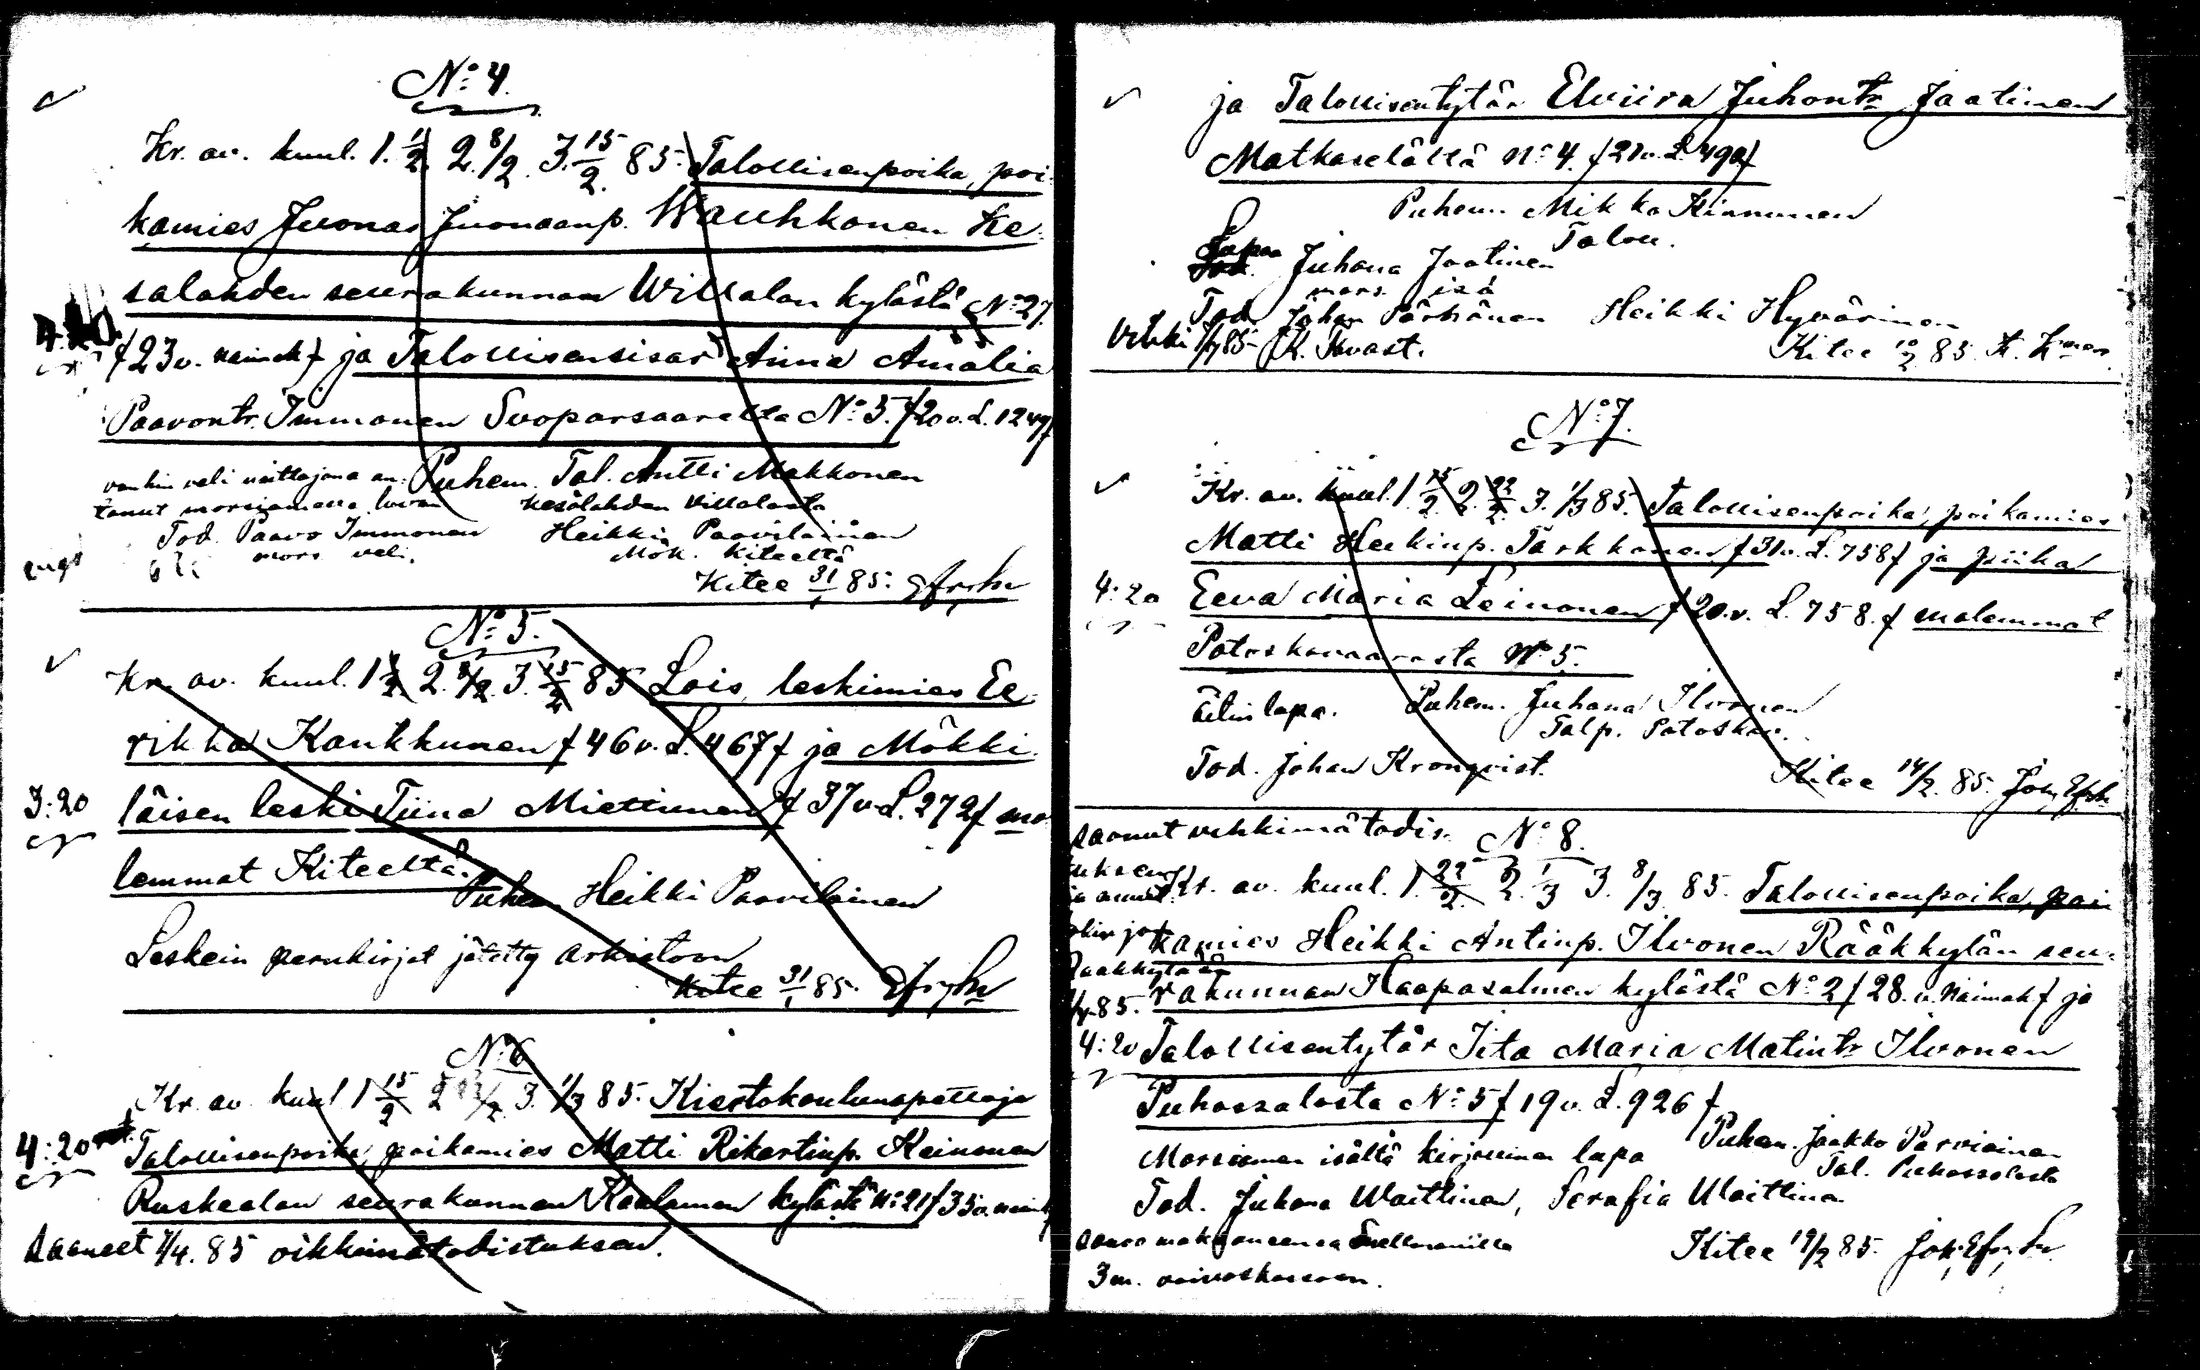 No 4.
Kr. av. kuul. 1. 1/2 2. 8/2 3. 15/2 85. Talollisenpoika, poi-
kamies Juonas Juonaanp. Wauhkonen Ke-
salahden seurakunnan Willalan kylästä No 27.
/23 v. naimat/ ja Talollisensisar Anna Amalia
Paavontr. Immonen Suoparsaarelta No 5. /20 v. L. 1249/
vanhin veli naittajana an-
tanut morsiamelle luvan
Puhem. Tal. Antti Makkonen
Kesälahden Villalasta
Tod. Paavo Immonen
mors. veli.
Heikki Paavilainen
Mök. Kiteeltä
Kitee 31/1 85.
No 5.
Kr. av. kuul. 1 1/2 2. 8/2. 3. 15/2 85 Lois, leskimies Ee-
rikka Kaukkunen /46 v. L. 467/ ja Mökki-
3:20
läisen leski Tiina Miettinen / 37 v. L. 272/ mo-
lemmat Kiteeltä.
Puhem Heikki Paavilainen
Leskein perukirjat jätetty arkistoon
Kitee 31/1 85.
No 6
Kr. av. kuul 1 15/2 2 22/2 3. 1/3 85. Kiertokoulunopettaja
4:20
Talollisenpoika, poikamies Matti Rikartinp. Keinonen
Ruskealan seurakunnan Kaalamon kylästä No 21 /35 v. naimat/
Saaneet 7/4. 85 vihkimätodistuksen.
ja Talollisentytär Elviira Juhontr Jaatinen
Matkaselältä No 4. /21 v. L. 490/
Puhem. Mikko Kinnunen
Talon.
Lupaa
Juhana Jaatinen
mors. isä
Tod. Johan Pärhänen Heikki Hyvärinen
Vihki 7/4 85 K. Kvast.
Kitee 10/2 85.
No 7.
Kr. av. kuul. 1. 15/2. 2. 22/2. 3. 1/3 85. Talollisenpoika, poikamies
Matti Heikinp. Tarkkonen /31 v. L. 758/ ja piika
4:20
Eeva Maria Leinonen / 20. v. L. 758. / molemmat
Potoskavaarasta No 5.
Äitin lupa. Puhem. Juhana Ilvonen
Talp. Potoskav.
Tod. Johan Kronqvist.
Kitee 14/2. 85.
saanut vihkimätodis-
tuksen
No 8.
Kr. av. kuul. 1. 22/2. 2. 1/3 3. 8/3 85. Talollisenpoika, poi-
kamies Heikki Antinp. Ilvonen Rääkkylän seu-
rakunnan Haapasalmen kylästä No 2 / 28. v. naimat / ja
4:20
Talollisentytär Iita Maria Matintr Ilvonen
Puhossalosta No 5 / 19 v. L. 926 /
Puhem. Jaakko Parviainen
Tal. Puhossalosta
Morsiamen isältä kirjallinen lupa
Tod. Juhana Waittinen, Serafia Waittinen
Kitee 19/2 85.
3 m. vaivaskassaan.